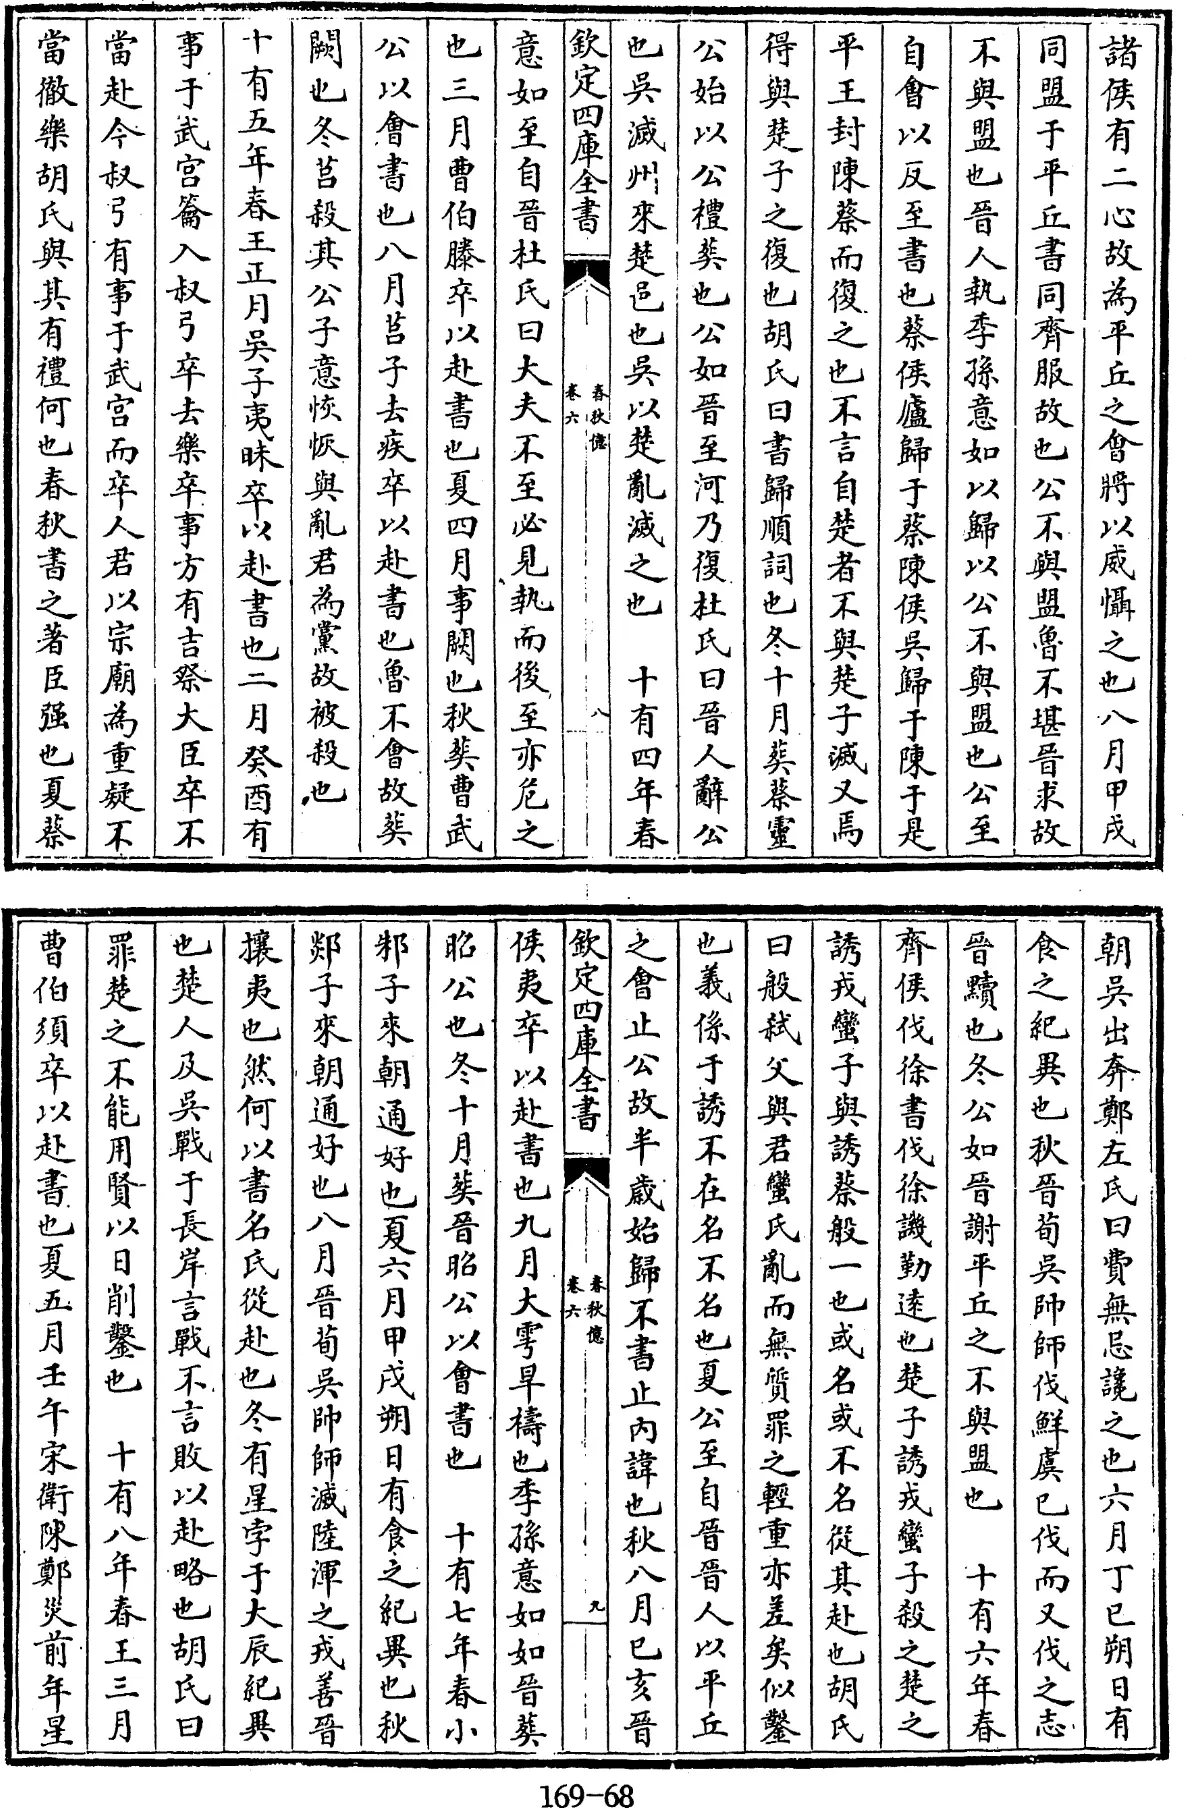 諸侯有二心故為平丘之會將以威懾之也八月甲戌
同盟于平丘書同齊服故也公不與盟魯不堪晉求故
不與盟也晉人執季孫意如以歸以公不與盟也公至
自會以反至書也蔡侯廬歸于蔡陳侯吳歸于陳于是
平王封陳蔡而復之也不言自楚者不與楚子滅又焉
得與楚子之復也胡氏曰書歸順詞也冬十月葬蔡靈
公始以公禮葬也公如晉至河乃復杜氏曰晉人辭公
也吳滅州來楚邑也吳以楚亂滅之也　十有四年春
欽定四庫全書
春秋億
卷六
八
意如至自晉杜氏曰大夫不至必見執而後至亦危之
也三月曹伯滕卒以赴書也夏四月事闕也秋葬曹武
公以會書也八月莒子去疾卒以赴書也魯不會故葬
闕也冬莒殺其公子意恢恢與亂君為黨故被殺也
十有五年春王正月吳子夷昧卒以赴書也二月癸酉有
事于武宮籥入叔弓卒去樂卒事方有吉祭大臣卒不
當赴今叔弓有事于武宮而卒人君以宗廟為重疑不
當徹樂胡氏與其有禮何也春秋書之著臣强也夏蔡
朝吳出奔鄭左氏曰費無忌讒之也六月丁巳朔日有
食之紀異也秋晉荀吳帥師伐鮮虞已伐而又伐之志
晉黷也冬公如晉謝平丘之不與盟也　十有六年春
齊侯伐徐書伐徐譏勤逺也楚子誘戎蠻子殺之楚之
誘戎蠻子與誘蔡般一也或名或不名從其赴也胡氏
曰般弑父與君蠻氏亂而無質罪之輕重亦差矣似鑿
也義係于誘不在名不名也夏公至自晉晉人以平丘
之會止公故半歲始歸不書止内諱也秋八月己亥晉
欽定四庫全書
春秋億
卷六
九
侯夷卒以赴書也九月大雩旱禱也季孫意如如晉葬
昭公也冬十月葬晉昭公以會書也　十有七年春小
邾子來朝通好也夏六月甲戌朔日有食之紀異也秋
郯子來朝通好也八月晉荀吳帥師滅陸渾之戎善晉
攘夷也然何以書名氏從赴也冬有星孛于大辰紀異
也楚人及吳戰于長岸言戰不言敗以赴略也胡氏曰
罪楚之不能用賢以日削鑿也　十有八年春王三月
曹伯須卒以赴書也夏五月壬午宋衛陳鄭災前年星
169-68